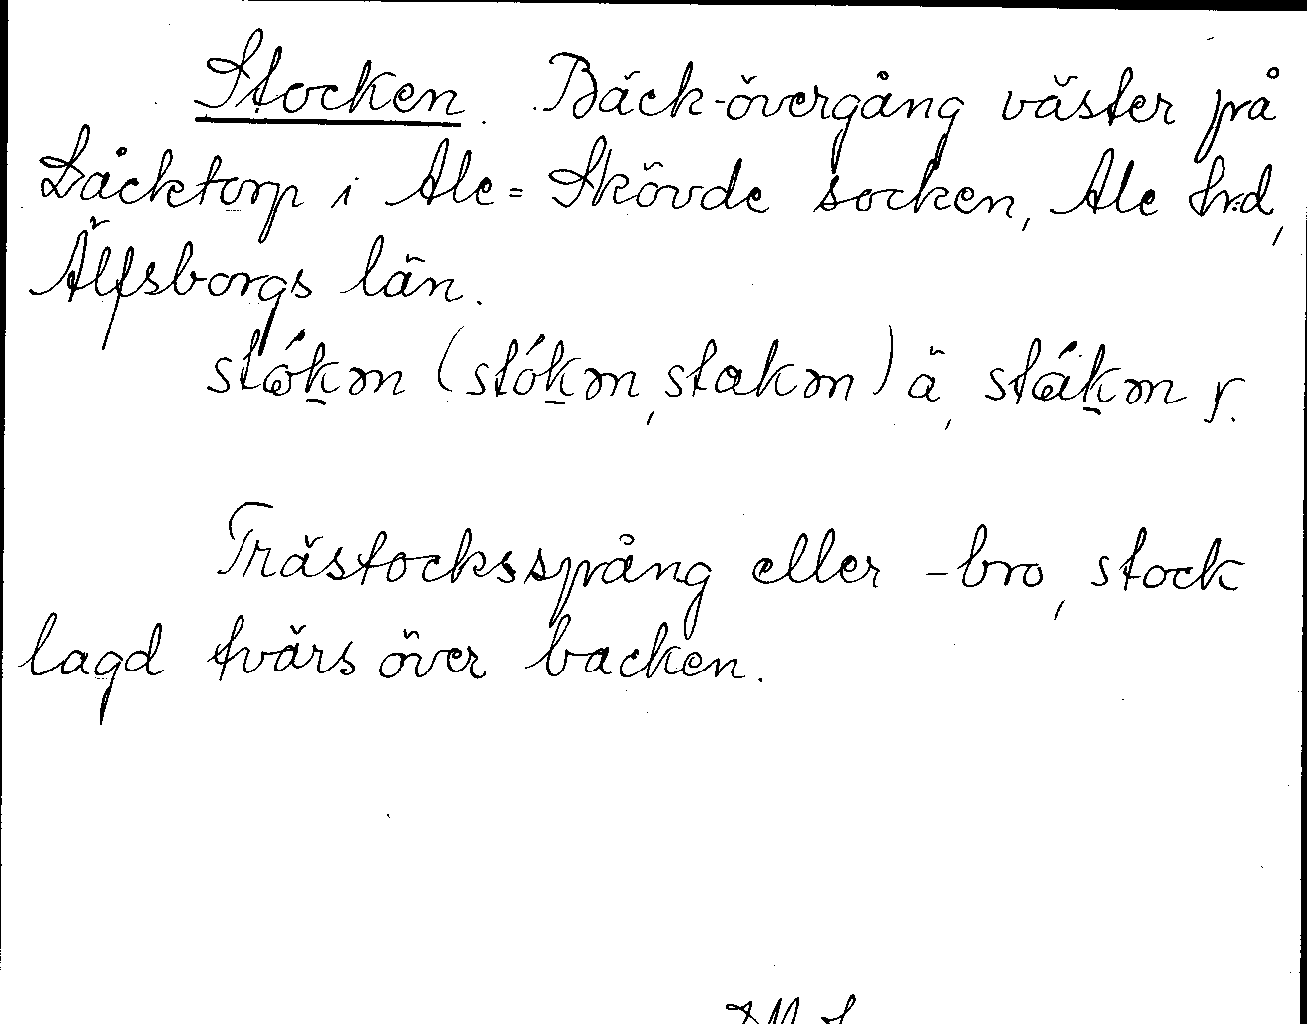 Stocken. Bäck-övergång väster på
Låcktorp i Ale=Skövde socken, Ale hrd,
Älfsborgs län.
stókm (stókm, stakm) ä, stákm r.
Trästocksspång eller -bro, stock
lagd tvärs över backen.